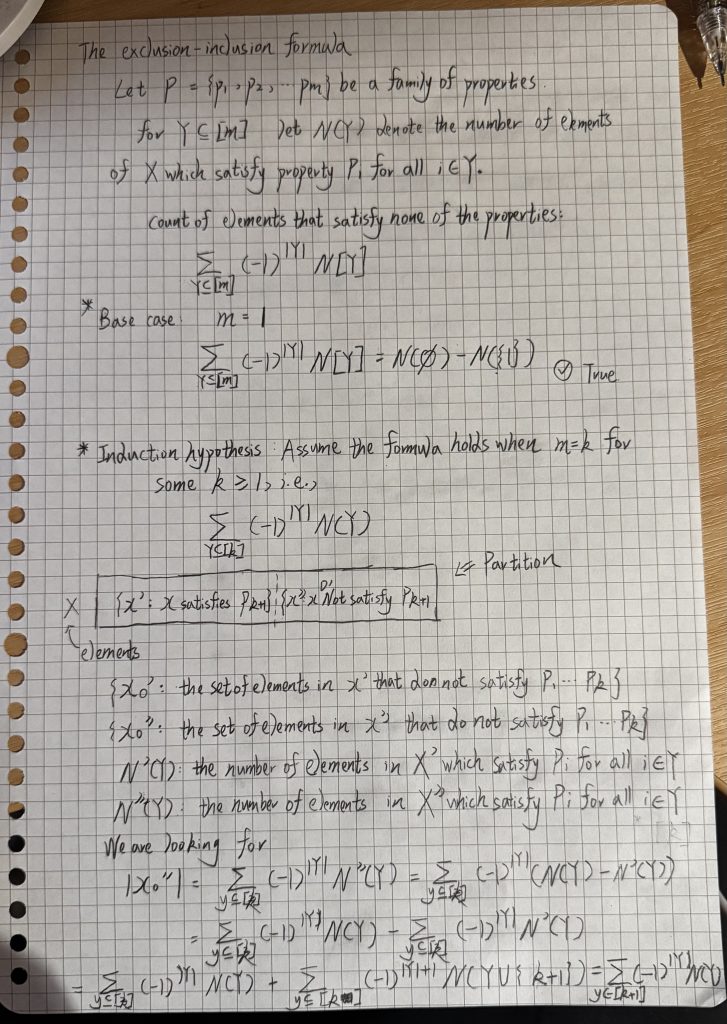 The exclusion-inclusion formula
Let P = {p₁, p₂, ... pm} be a family of properties.
for Y ⊆ [m] let N(Y) denote the number of elements
of X which satisfy property Pi for all i ∈ Y.
count of elements that satisfy none of the properties:
∑ (-1)^|Y| N[Y]
Y⊆[m]
* Base case: m = 1
∑ (-1)^|Y| N[Y] = N(∅) - N({1}) ✓ True
Y⊆[m]
* Induction hypothesis: Assume the formula holds when m=k for
some k ≥ 1, i.e.,
∑ (-1)^|Y| N(Y)
Y⊆[k]
X {x': x satisfies Pk+1} {x'': x Not satisfy Pk+1 ⇐ Partition
elements
{x₀': the set of elements in x' that don not satisfy P₁ ... Pk}
{x₀'': the set of elements in x'' that do not satisfy P₁ ... Pk}
N'(Y): the number of elements in X' which satisfy Pi for all i∈Y
N''(Y): the number of elements in X'' which satisfy Pi for all i∈Y
We are looking for
|x₀''| = ∑ (-1)^|Y| N''(Y) = ∑ (-1)^|Y| (N(Y) - N'(Y))
y⊆[k] y⊆[k]
= ∑ (-1)^|Y| N(Y) - ∑ (-1)^|Y| N'(Y)
y⊆[k] y⊆[k]
= ∑ (-1)^|Y| N(Y) + ∑ (-1)^|Y|+1 N(Y∪{k+1}) = ∑ (-1)^|Y| N(Y)
y⊆[k] y⊆[k] y∈[k+1]